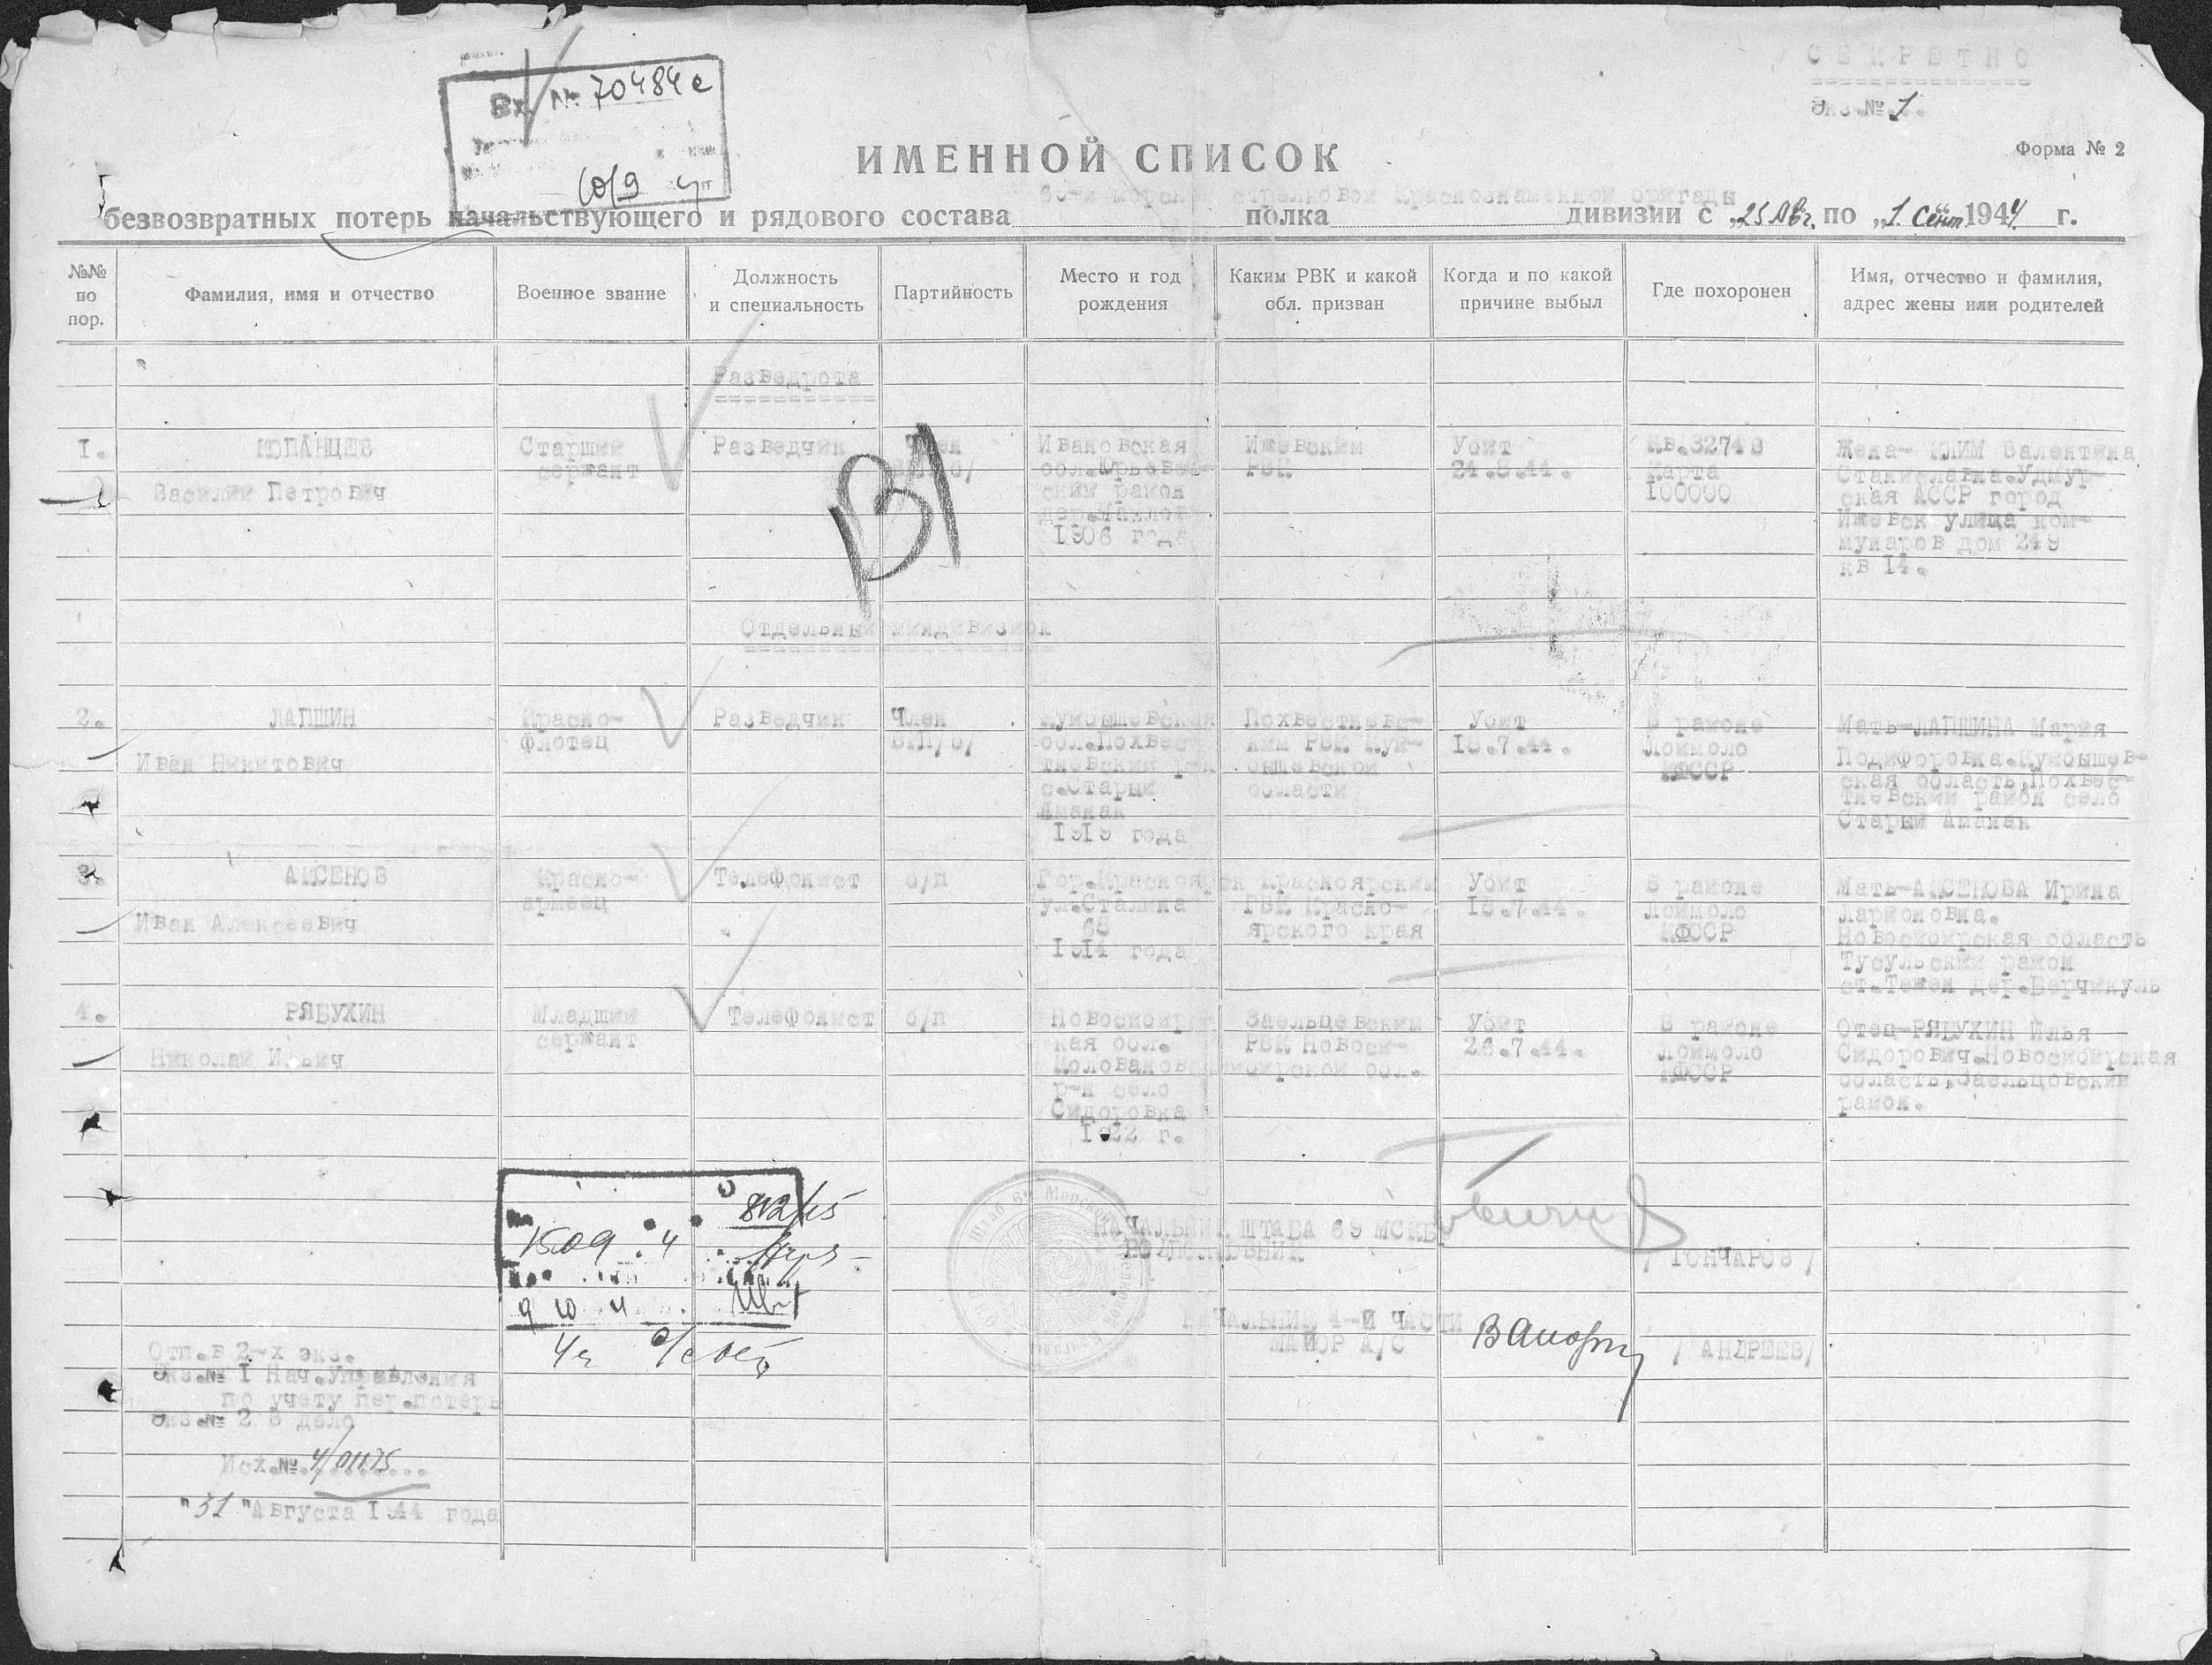 СЕКРЕТНО
Экз.№ 1.
Вх № 70484с
10/9
Форма № 2
ИМЕННОЙ СПИСОК
морской стрелковой Краснознаменной бригады
безвозвратных потерь начальствующего и рядового состава полка дивизии с „25 Авг. по „1. Сент. 1944 г.
№№ по пор.
Фамилия, имя и отчество
Военное звание
Должность и специальность
Партийность
Место и год рождения
Каким РВК и какой обл. призван
Когда и по какой причине выбыл
Где похоронен
Имя, отчество и фамилия, адрес жены или родителей
Разведрота
1.
Василий Петрович
Старший
сержант
Разведчик
Член
Ивановская
ский район
1906 года
Ижевским
РВК
Убит
24.8.44.
Кв.32748
Карта
100000
Жена- КЛИМ Валентина
Станиславна.Удмур-
ская АССР город
Ижевск улица Ком-
мунаров дом 249
кв 14.
Отдельный миндивизион
2.
ЛАПШИН
Иван Никитович
Красно-
флотец
Разведчик
Член
Куйбышевская
обл.Похвис
тневский р-н
с.Старый
Аманак
1919 года
Похвестневс-
ким РВК Куй-
бышевской
области
Убит
В районе
Лоймоло
КФССР
Мать-ЛАПШИНА Мария
Куйбышев-
ская область,Похвес-
тневский район село
Старый Аманак
3.
АКСЕНОВ
Иван Алексеевич
Красно-
армеец
Телефонист
б/п
Гор.Красноярск
ул.Сталина
68
1914 года
Красноярским
ГВК Красно-
ярского края
Убит
В районе
Лоймоло
КФССР
Мать-АКСЕНОВА Ирина
Ларионовна.
Новосибирская область
Тусульский район
4.
РЯБУХИН
Николай Ильич
Младший
сержант
Телефонист
б/п
Новосибирс
кая обл.
р-н село
Сидоровка
1922 г.
Заельцевским
РВК Новоси-
бирской обл.
Убит
26.7.44.
В районе
Лоймоло
КФССР
Отец-РЯБУХИН Илья
Сидорович.Новосибирская
область,Заельцовский
район.
НАЧАЛЬНИК ШТАБА 69 МСКБР
ПОДПОЛКОВНИК
/ ГОНЧАРОВ /
НАЧАЛЬНИК 4-Й ЧАСТИ
МАЙОР А/С
/ АНДРЕЕВ/
Отп.в 2-х экз.
Экз.№ 1 Нач.Управления
по учету пер.потерь
Экз.№ 2 В дело
Исх.№. 4/01175
"31 "Августа 1944 года